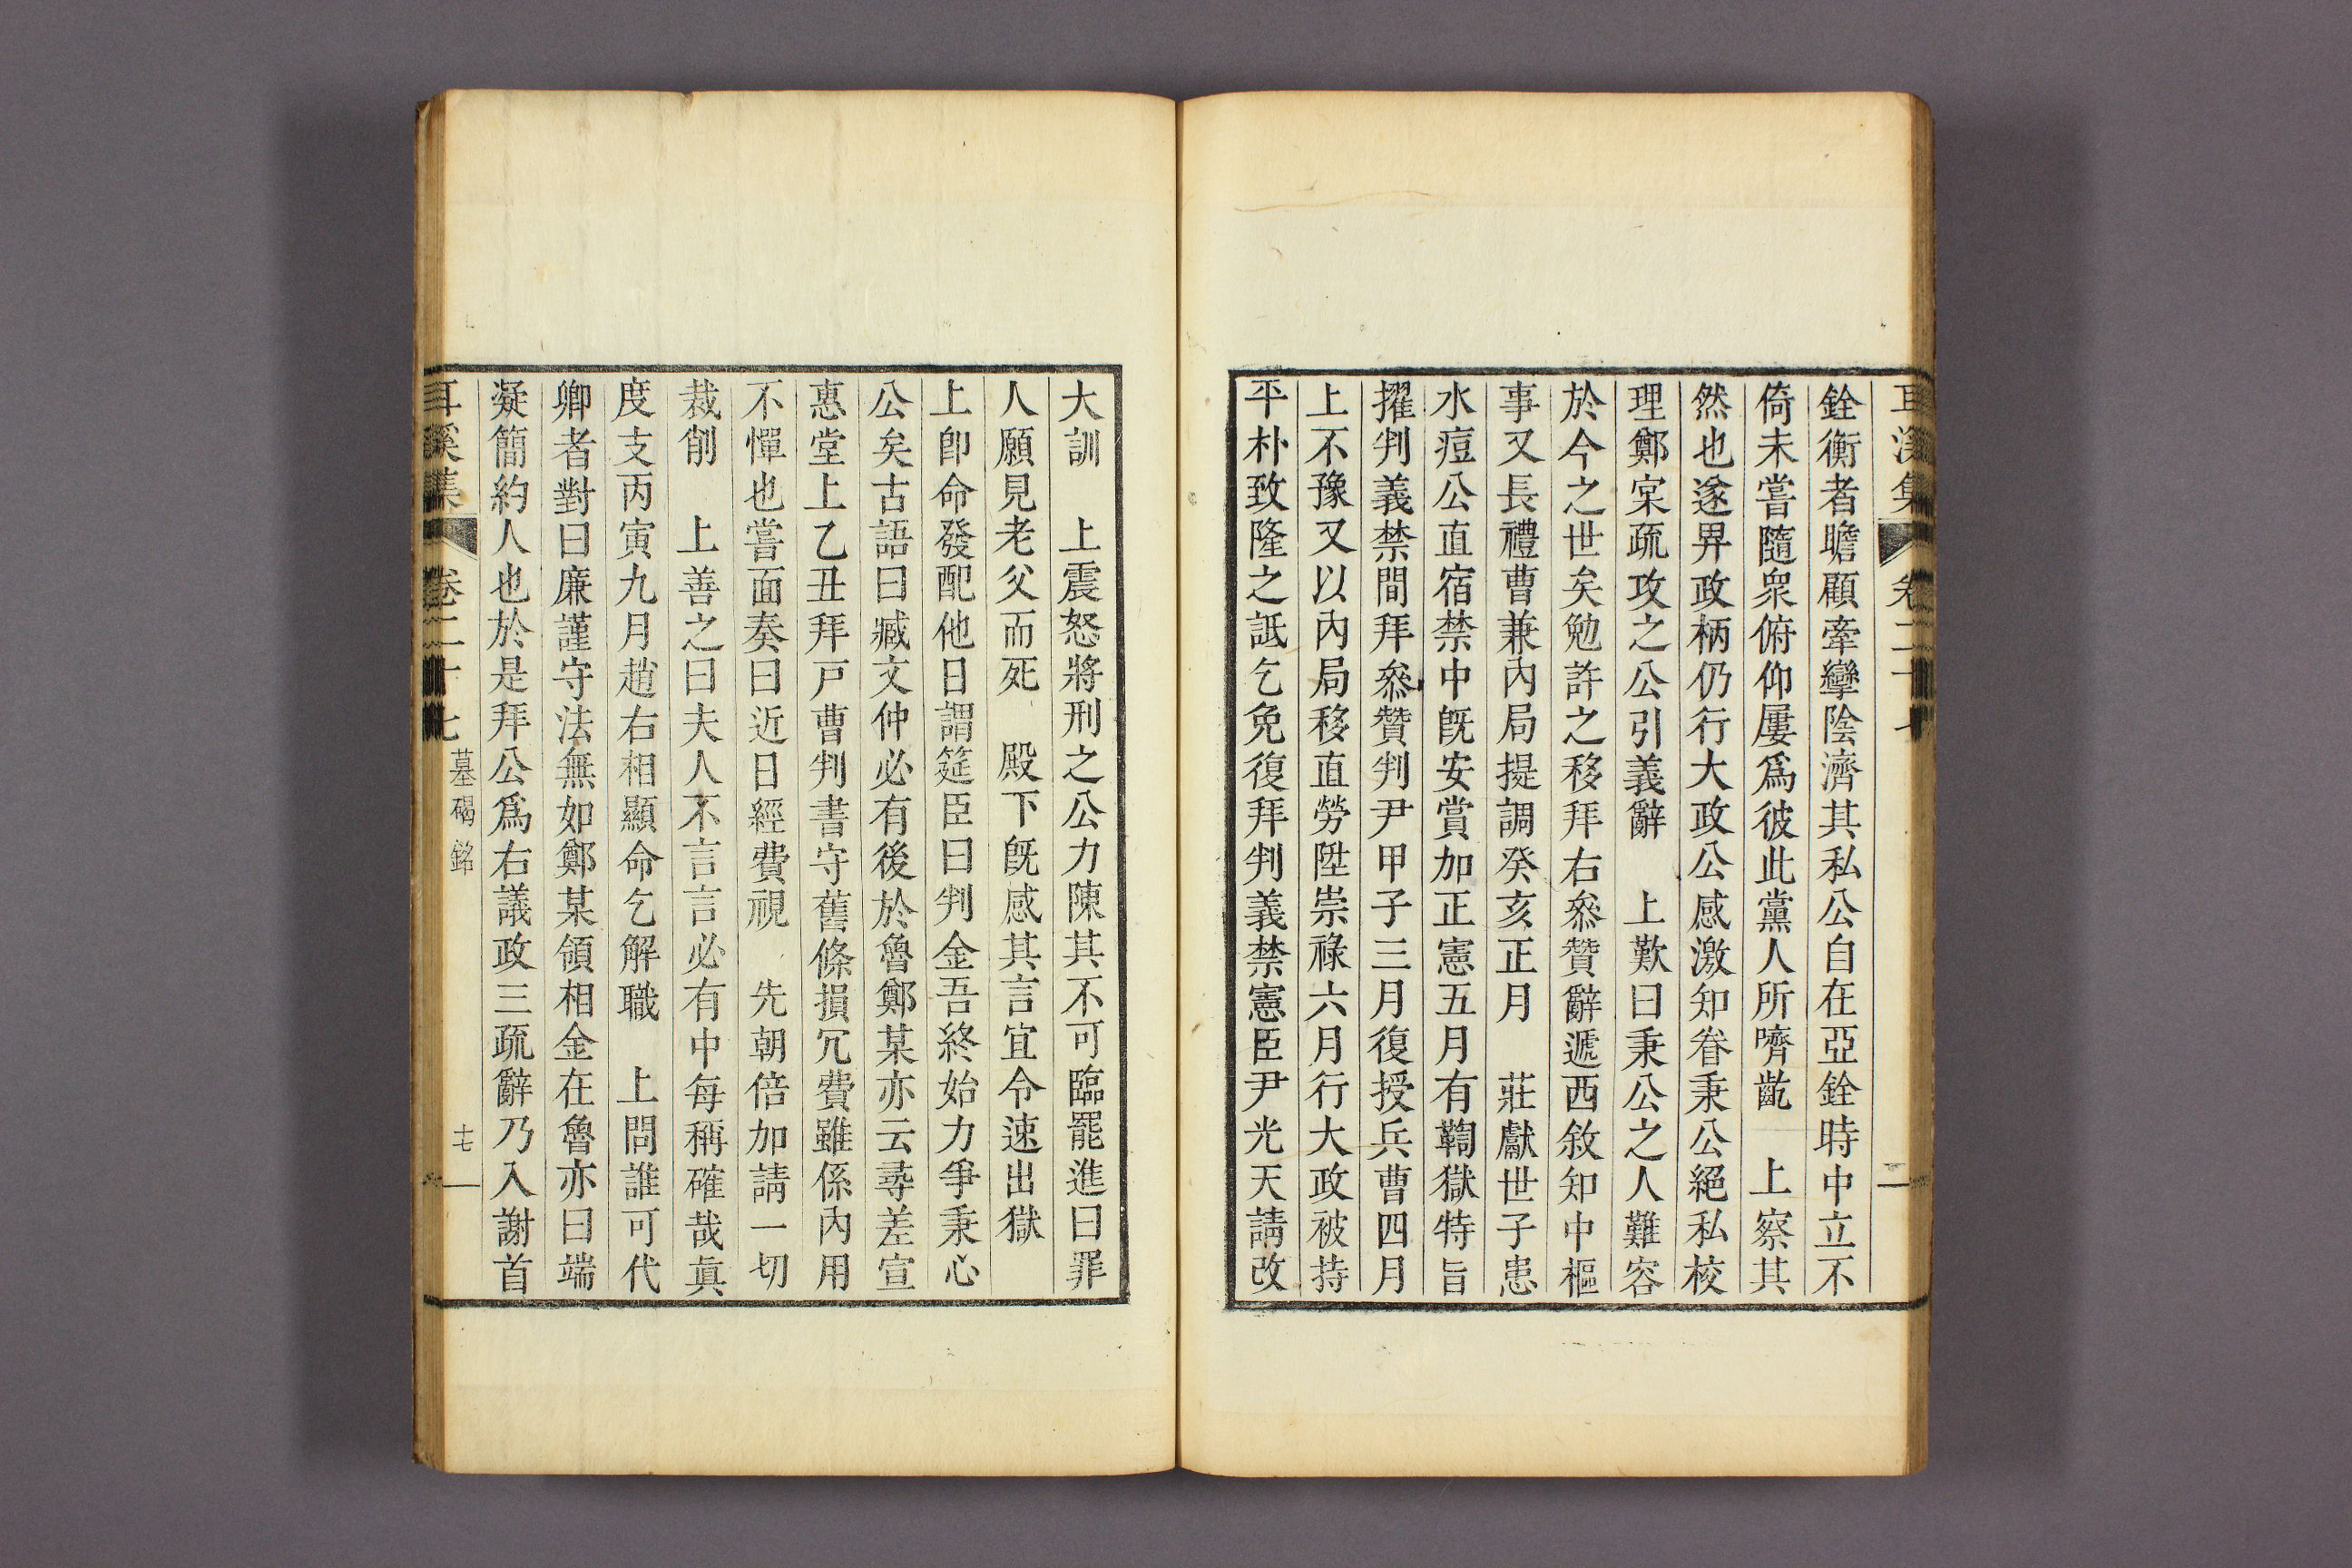 耳溪集 卷二十七
銓衡者瞻顧牽攣陰濟其私公自在亞銓時中立不
倚未嘗隨衆俯仰屢爲彼此黨人所嚌齕 上察其
然也遂畀政柄仍行大政公感激知眷秉公絕私校
理鄭宲疏攻之公引義辭 上歎曰秉公之人難容
於今之世矣勉許之移拜右叅贊辭遞西敘知中樞
事又長禮曹兼內局提調癸亥正月 莊獻世子患
水痘公直宿禁中旣安賞加正憲五月有鞫獄特旨
擢判義禁間拜叅贊判尹甲子三月復授兵曹四月
上不豫又以內局移直勞陞崇祿六月行大政被持
平朴致隆之詆乞免復拜判義禁憲臣尹光天請改
大訓 上震怒將刑之公力陳其不可臨罷進曰罪
人願見老父而死 殿下旣感其言宜令速出獄
上卽命發配他日謂筵臣曰判金吾終始力爭秉心
公矣古語曰臧文仲必有後於魯鄭某亦云尋差宣
惠堂上乙丑拜戶曹判書守舊條損冗費雖係內用
不憚也嘗面奏曰近日經費視 先朝倍加請一切
裁削 上善之曰夫人不言言必有中每稱確哉眞
度支丙寅九月趙右相顯命乞解職 上問誰可代
卿者對曰廉謹守法無如鄭某領相金在魯亦曰端
凝簡約人也於是拜公爲右議政三疏辭乃入謝首
耳溪集 卷二十七 墓碣銘 十七